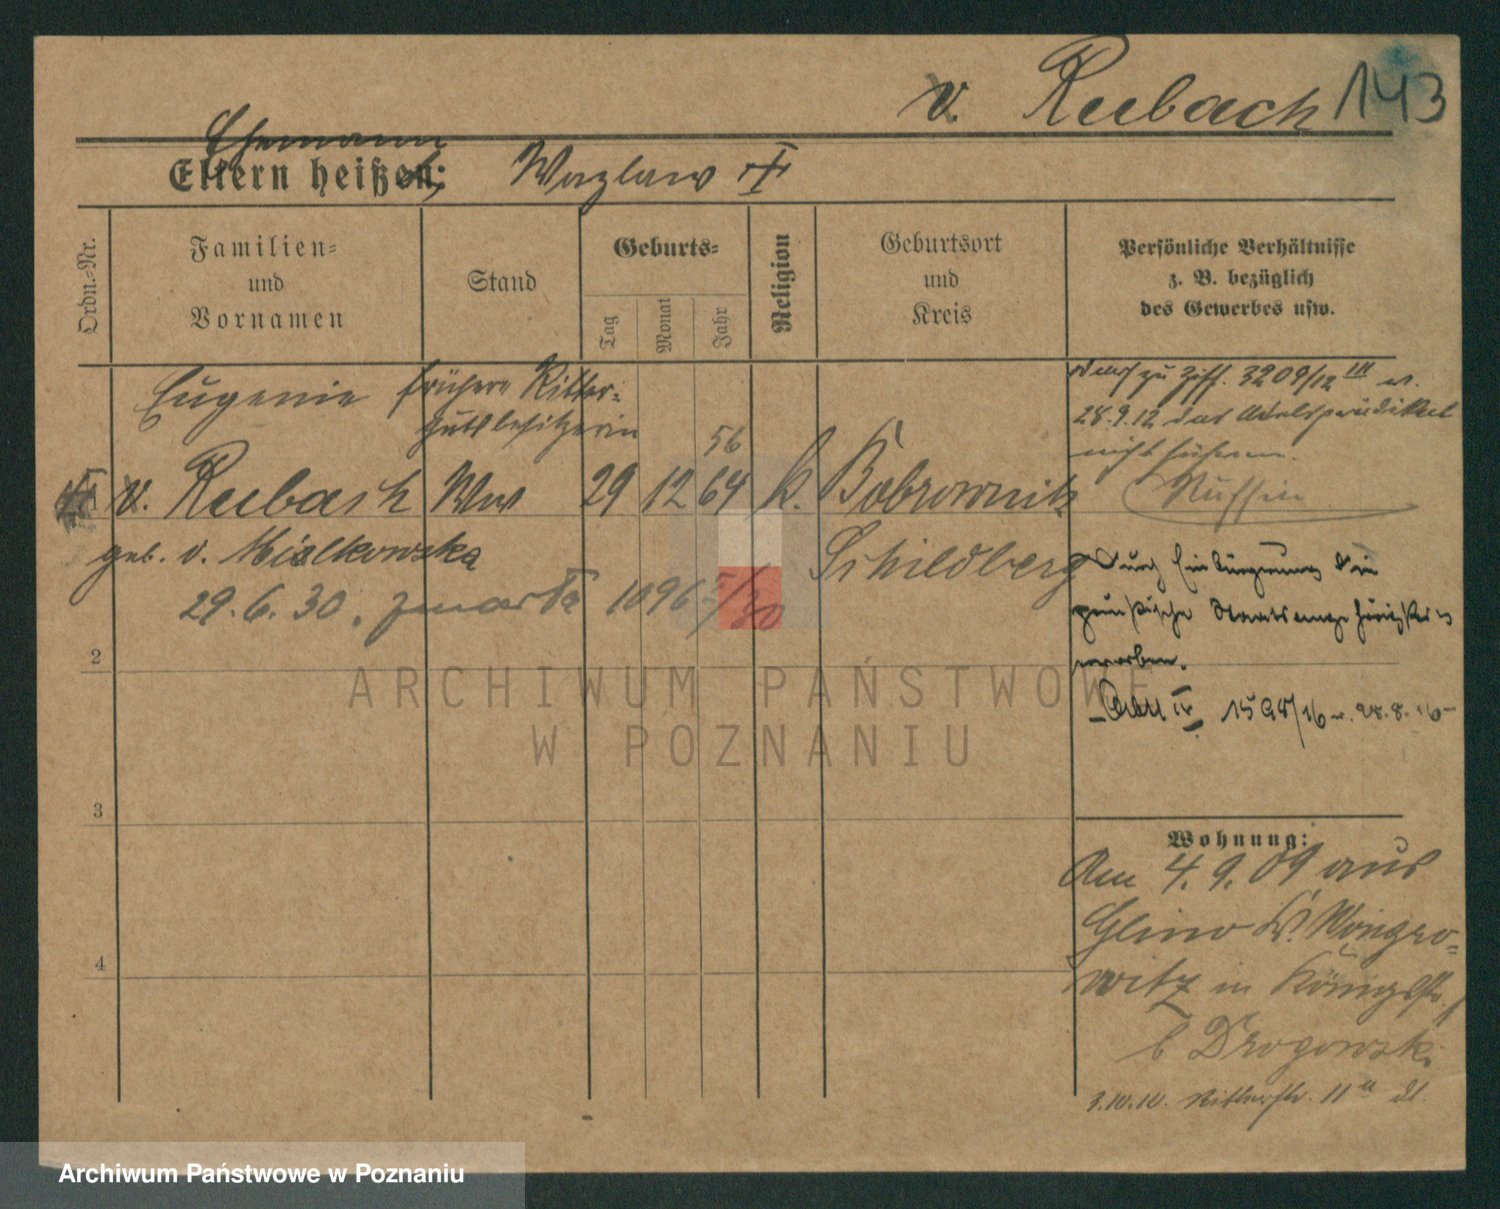 v. Reebach 143
Ehemann
Eltern heißen: Wazlaw
Ordn.-Nr.
Familien-
und
Vornamen
Stand
Geburts-
Tag
Monat
Jahr
Religion
Geburtsort
und
Kreis
Persönliche Verhältnisse
z. B. bezüglich
des Gewerbes usw.
Eugenie
frühere Ritter-
gutsbesitzerin
darf zu Ziff. 3209/12 III v.
28.9.12 das Adelsprädikat
nicht führen.
Russin
56
1 v. Reebach Wwe 29 12 64 k. Bobrownik
geb. v. Mialkowska
Schildberg
29.6.30. zmarła 1096
Durch Einbürgerung die
preußische Staatsangehörigkeit
erworben.
1598/16 v. 28.8.16
2
3
4
Wohnung:
Am 4.9.09 aus
Glino Kr. Wongro-
witz in Königstr.
b Drogowski
3.10.10. Ritterstr. 11a
ARCHIWUM PAŃSTWOWE
W POZNANIU
Archiwum Państwowe w Poznaniu